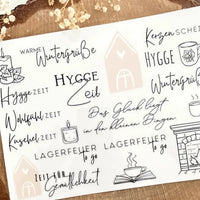 WARME
Wintergrüße
HYGGE
Zeit
Kerzen SCHEIN
HYGGE
Wintergrüße
Hygge ZEIT
Wohlfühl ZEIT
Kuschel ZEIT
Das Glück liegt
in den kleinen Dingen
LAGERFEUER
to go
LAGERFEUER
to go
ZEIT FÜR
Gemütlichkeit